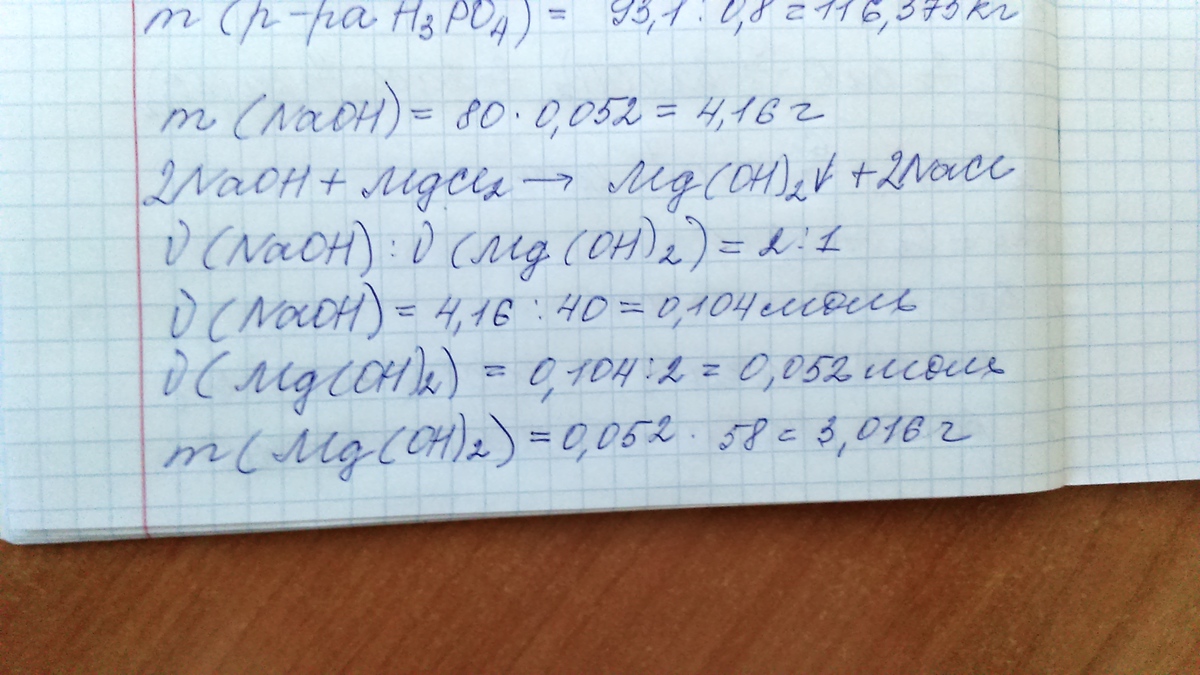 m (р-ра H₃PO₄) = 93,1 : 0,8 = 116,375 кг
m (NaOH) = 80 · 0,052 = 4,16 г
2NaOH + MgCl₂ → Mg(OH)₂↓ + 2NaCl
ν (NaOH) : ν (Mg(OH)₂) = 2 : 1
ν (NaOH) = 4,16 : 40 = 0,104 моль
ν (Mg(OH)₂) = 0,104 : 2 = 0,052 моль
m (Mg(OH)₂) = 0,052 · 58 = 3,016 г